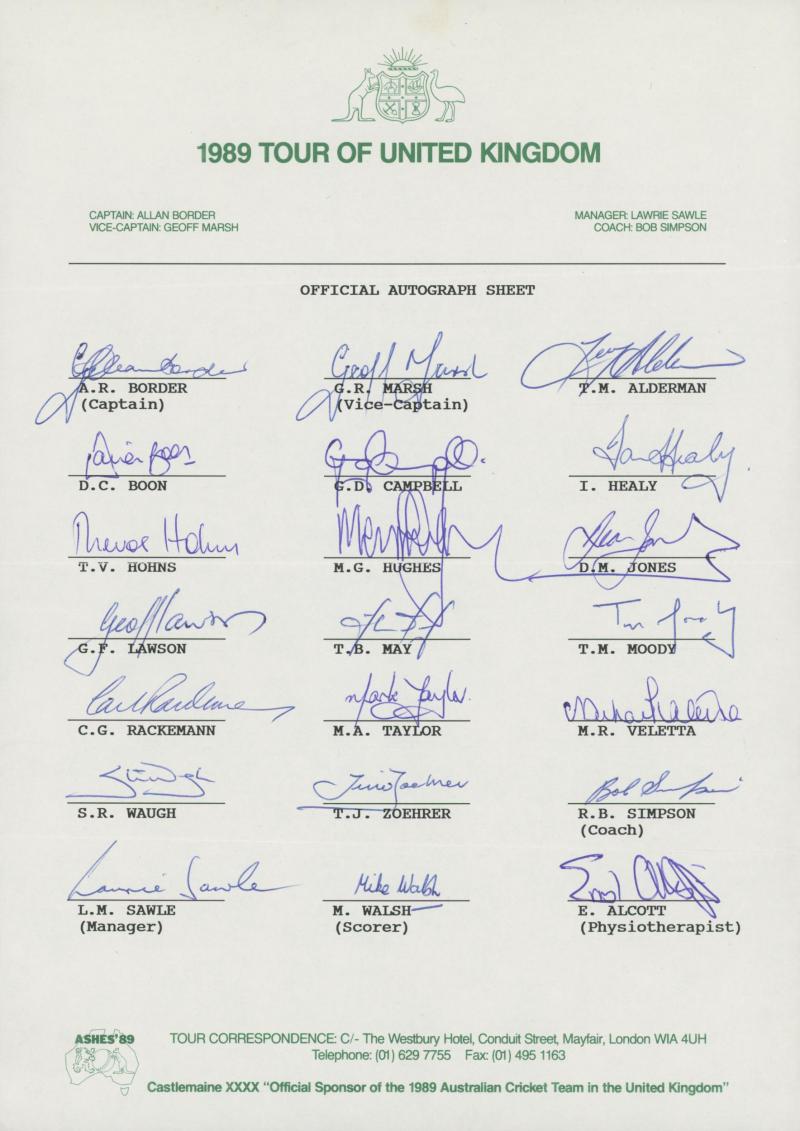 1989 TOUR OF UNITED KINGDOM
CAPTAIN: ALLAN BORDER
VICE-CAPTAIN: GEOFF MARSH
MANAGER: LAWRIE SAWLE
COACH: BOB SIMPSON
OFFICIAL AUTOGRAPH SHEET
Geoff Marsh
A.R. BORDER
(Captain)
G.R. MARSH
(Vice-Captain)
T.M. ALDERMAN
Ian Healy
D.C. BOON
G.D. CAMPBELL
I. HEALY
Trevor Hohns
T.V. HOHNS
M.G. HUGHES
D.M. JONES
Geoff Lawson
G.F. LAWSON
T.B. MAY
T.M. MOODY
Carl Rackemann
Mark Taylor
C.G. RACKEMANN
M.A. TAYLOR
M.R. VELETTA
Tim Zoehrer
Bob Simpson
S.R. WAUGH
T.J. ZOEHRER
R.B. SIMPSON
(Coach)
Lawrie Sawle
Mike Walsh
L.M. SAWLE
(Manager)
M. WALSH
(Scorer)
E. ALCOTT
(Physiotherapist)
ASHES'89
TOUR CORRESPONDENCE: C/- The Westbury Hotel, Conduit Street, Mayfair, London WIA 4UH
Telephone: (01) 629 7755 Fax: (01) 495 1163
Castlemaine XXXX "Official Sponsor of the 1989 Australian Cricket Team in the United Kingdom"